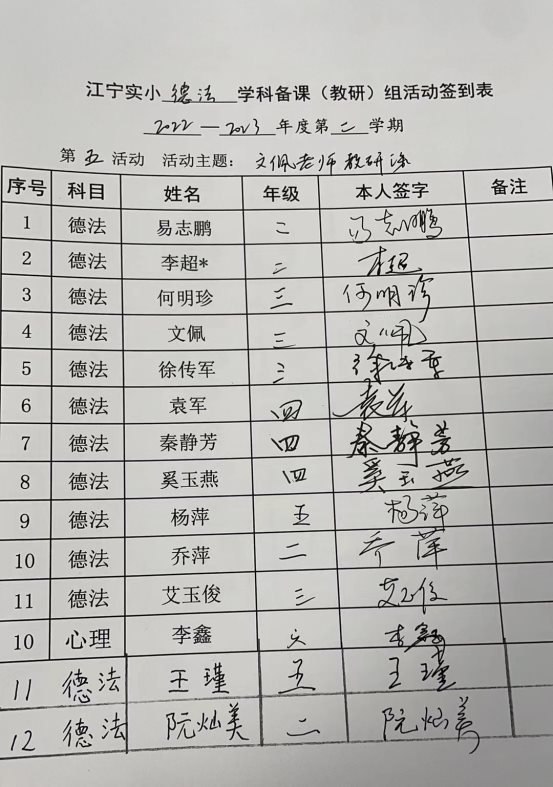 江宁实小 德法 学科备课（教研）组活动签到表
2022—2023 年度第 二 学期
第 五 活动 活动主题： 文佩老师教研课
序号 科目 姓名 年级 本人签字 备注
1 德法 易志鹏 二 易志鹏
2 德法 李超* 二 李超
3 德法 何明珍 三 何明珍
4 德法 文佩 三 文佩
5 德法 徐传军 三 徐传军
6 德法 袁军 四 袁军
7 德法 秦静芳 四 秦静芳
8 德法 奚玉燕 四 奚玉燕
9 德法 杨萍 五 杨萍
10 德法 乔萍 二 乔萍
11 德法 艾玉俊 三 艾玉俊
10 心理 李鑫 六 李鑫
11 德法 王瑾 五 王瑾
12 德法 阮灿美 二 阮灿美